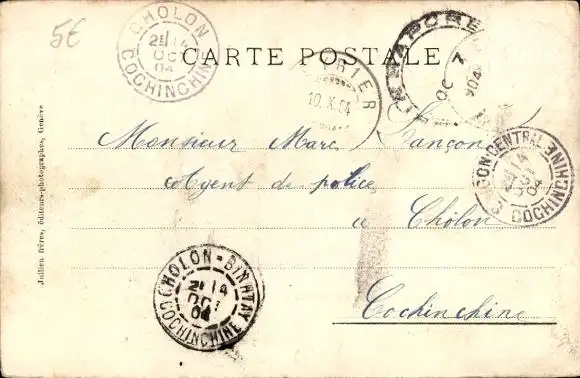 5€
CHOLON
2E 14
OCT
04
COCHINCHINE
CARTE POSTALE
10.X.04
SINGAPORE
OC 7
1904
Monsieur Marc Lançon
CENTRAL
COCHINCHINE
Agent de police
a Cholon
CHOLON-BINHTAY
2E 14
OCT
04
COCHINCHINE
Cochinchine
Jullien frères, éditeurs-photographes, Genève